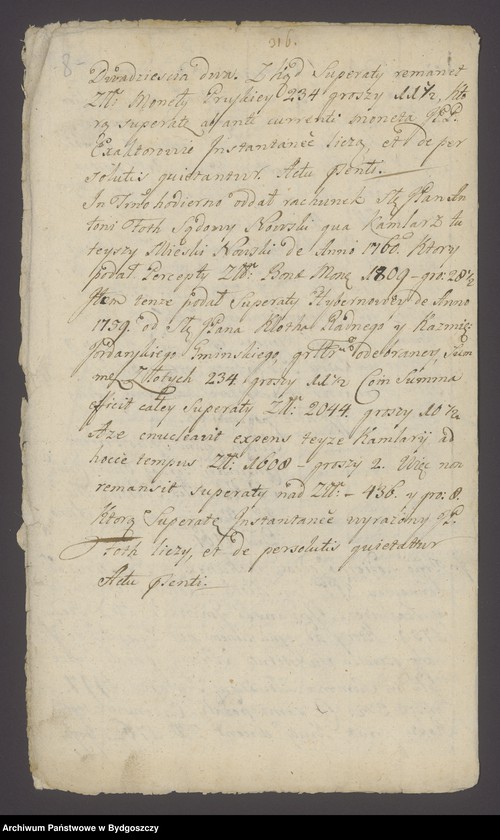 216.
8-
Dwadziescia dwa. Z kąd Superaty remanet
Złłt Monety Pruskiey 234 groszy 11½, Kto
rą superatę avanti currenti moneta PP.
Exaktorowie Instantaneè liczą, et de per
solutis quietantur. Actu psenti.
In Trno hodierno oddał rachunek Słę Pan An
toni Foth Sądowy Nowski qua Kamlarz tu
teyszy Mieski Nowski de Anno 1760. Ktory
podał Percepty Złłt. Bonæ Monę 1809 - gro: 28½
Item tenze podał Superaty Hybernowey de Anno
1759. od Słę Pana Klotha Radnego y Kazmię:
Jordańskiego Gminskiego, odebraney Sum
mę Złłotych 234 groszy 11½ Com Summa
efficit całey Superaty Złł: 2044. groszy 10½
A ze enucleavit expens teyze Kamlaryi ad
hocce tempus Złł: 1608 - groszy 2. Więc non
remansit superaty nad Złłt - 436. y gro: 8.
Ktorą Superatę Instantaneè wyrażony P.
Foth liczy, et de persolutis quietattur
Actu psenti.
Archiwum Państwowe w Bydgoszczy